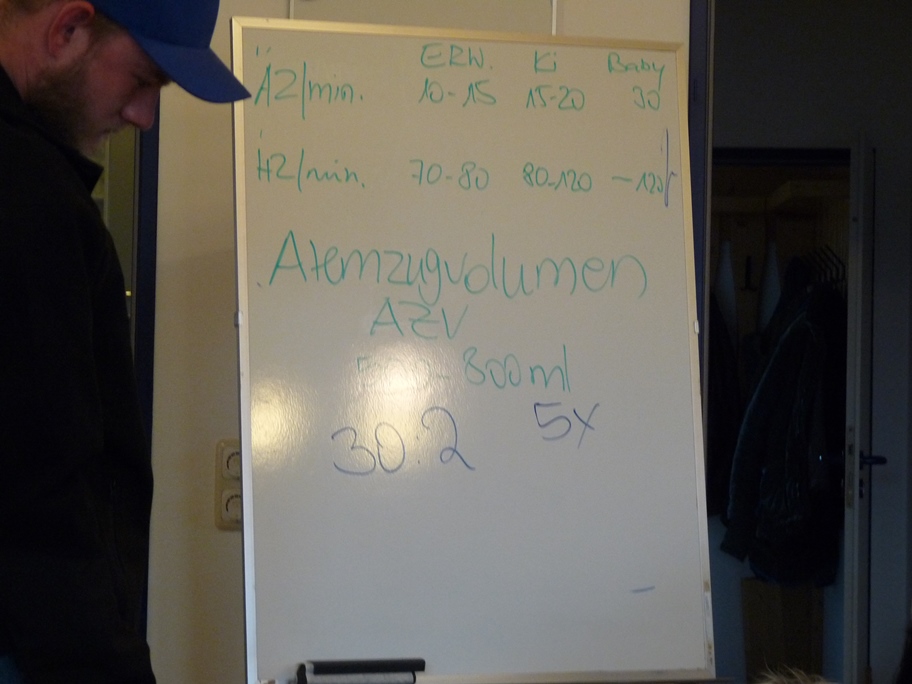 ERW. Ki Baby
AZ/min. 10-15 15-20 30
HZ/min. 70-80 80-120 ~120
Atemzugvolumen
AZV
- 800ml
30:2 5x